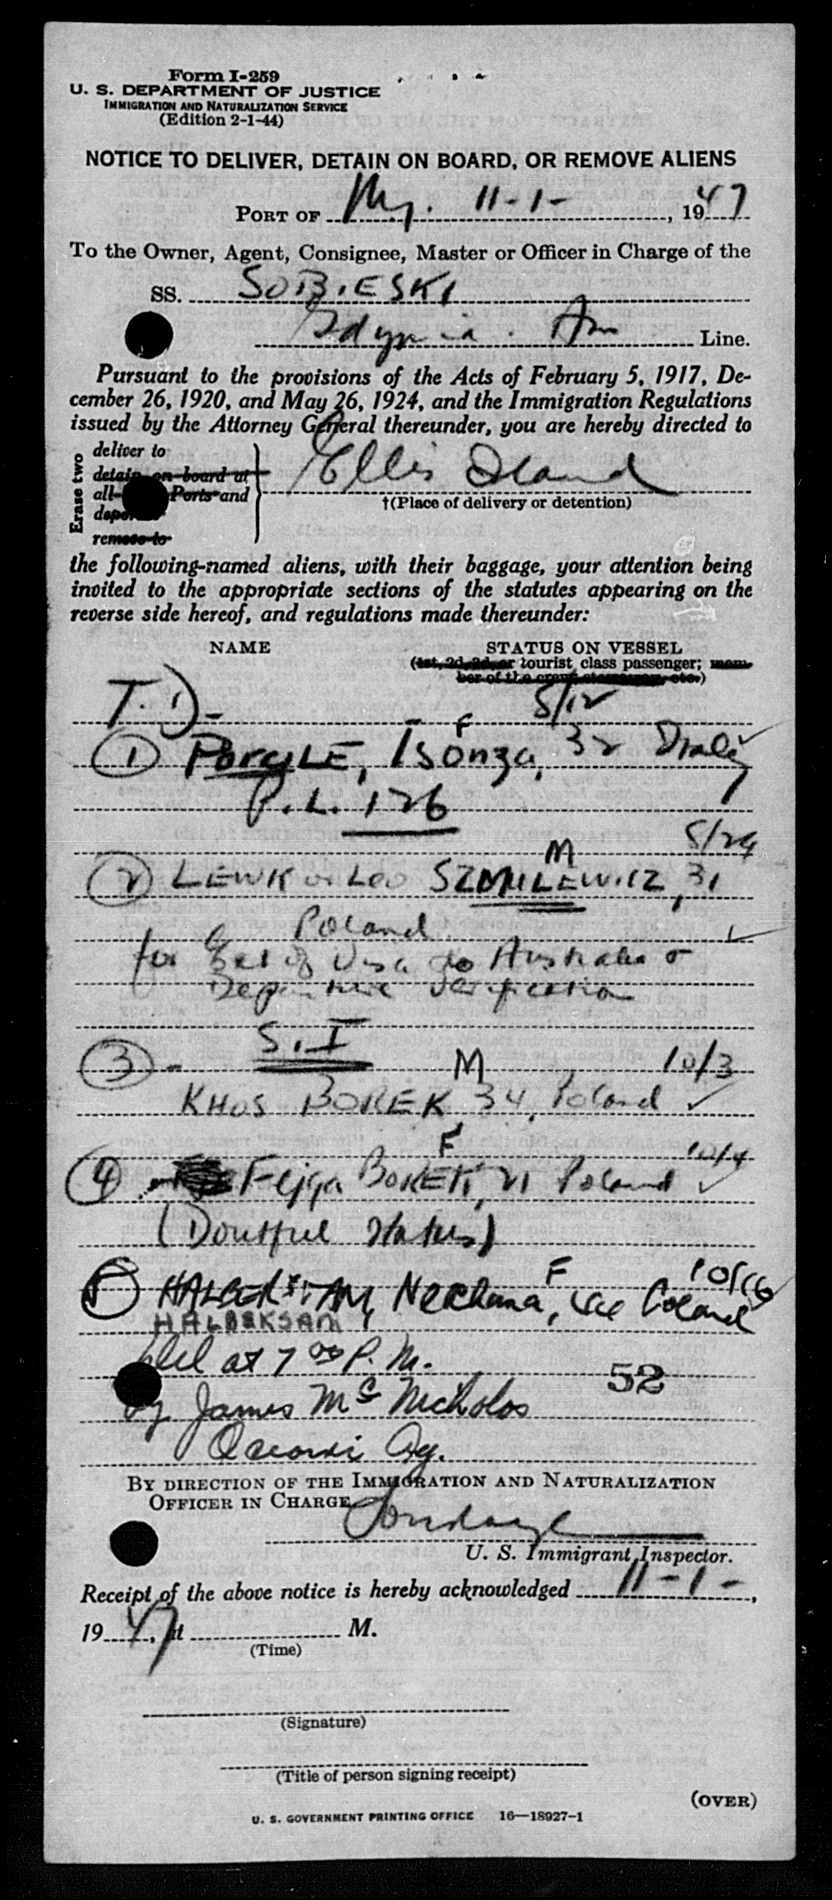 Form I-259
U. S. DEPARTMENT OF JUSTICE
IMMIGRATION AND NATURALIZATION SERVICE
(Edition 2-1-44)
NOTICE TO DELIVER, DETAIN ON BOARD, OR REMOVE ALIENS
PORT OF Ny. 11-1-, 1947
To the Owner, Agent, Consignee, Master or Officer in Charge of the
SS. SOBIESKI
Gdynia. Am Line.
Pursuant to the provisions of the Acts of February 5, 1917, De-
cember 26, 1920, and May 26, 1924, and the Immigration Regulations
issued by the Attorney General thereunder, you are hereby directed to
Erase two
deliver to
detain on board at
all Ports and
remove to
Ellis Island
†(Place of delivery or detention)
the following-named aliens, with their baggage, your attention being
invited to the appropriate sections of the statutes appearing on the
reverse side hereof, and regulations made thereunder:
NAME STATUS ON VESSEL
(1st, 2d, 3d, or tourist class passenger; mem-
ber of the crew, stowaway, etc.)
T. D - 5/12
F
1 PORCILE, Isonza, 32 Italy
P.L. 126
5/24
M
2 LEWK or Leo SZMULEWICZ, 31
Poland
for Ext of Visa to Australia or
Departure Verification
S.I
3 - M 10/3
KHOS BOREK 34, Poland
F 10/4
4 Fejga BOREK, 21 Poland
(Doutful Status)
F 10/16
5 HALBERSTAM, Nechama, Poland
HALBERSAM
del at 7 00 P. M.
52
by James McNicholos
By DIRECTION OF THE IMMIGRATION AND NATURALIZATION
OFFICER IN CHARGE
U. S. Immigrant Inspector.
Receipt of the above notice is hereby acknowledged 11-1-,
1947, at M.
(Time)
(Signature)
(Title of person signing receipt)
(OVER)
U. S. GOVERNMENT PRINTING OFFICE 16—18927-1